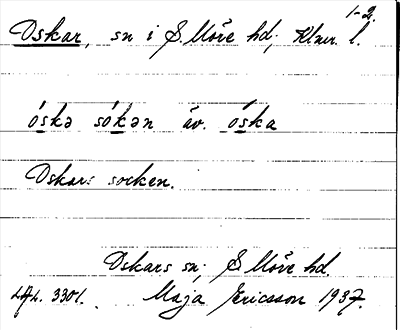 1-2.
Oskar, sn i S. Möre hd, Klmr. l.
óskə sókən äv. óska
Oskars socken.
Oskars sn; S. Möre hd.
LAL. 3301. Maja Ericsson 1937.